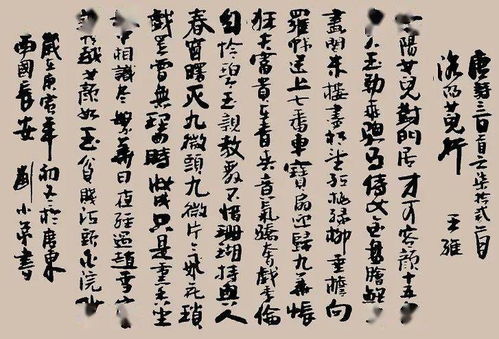 唐詩三百首之柒拾貳
洛陽女兒行 王維
陽女兒對門居才可容顏十五
人玉勒乘驄馬侍女金盤膾鯉
畫閣朱樓盡相望紅桃綠柳垂檐向
羅帷送上七香車寶扇迎歸九華帳
狂夫富貴在青春意氣驕奢劇季倫
自憐碧玉親教舞不惜珊瑚持與人
春窗曙灭九微九微片片飛花瑣
戲罷曾無理曲時妝成只是熏香坐
中相識盡繁華日夜經過趙李家
越女顏如玉貧賤江頭自浣紗
歲在庚寅年初冬於廣東
西園長安 劉小書